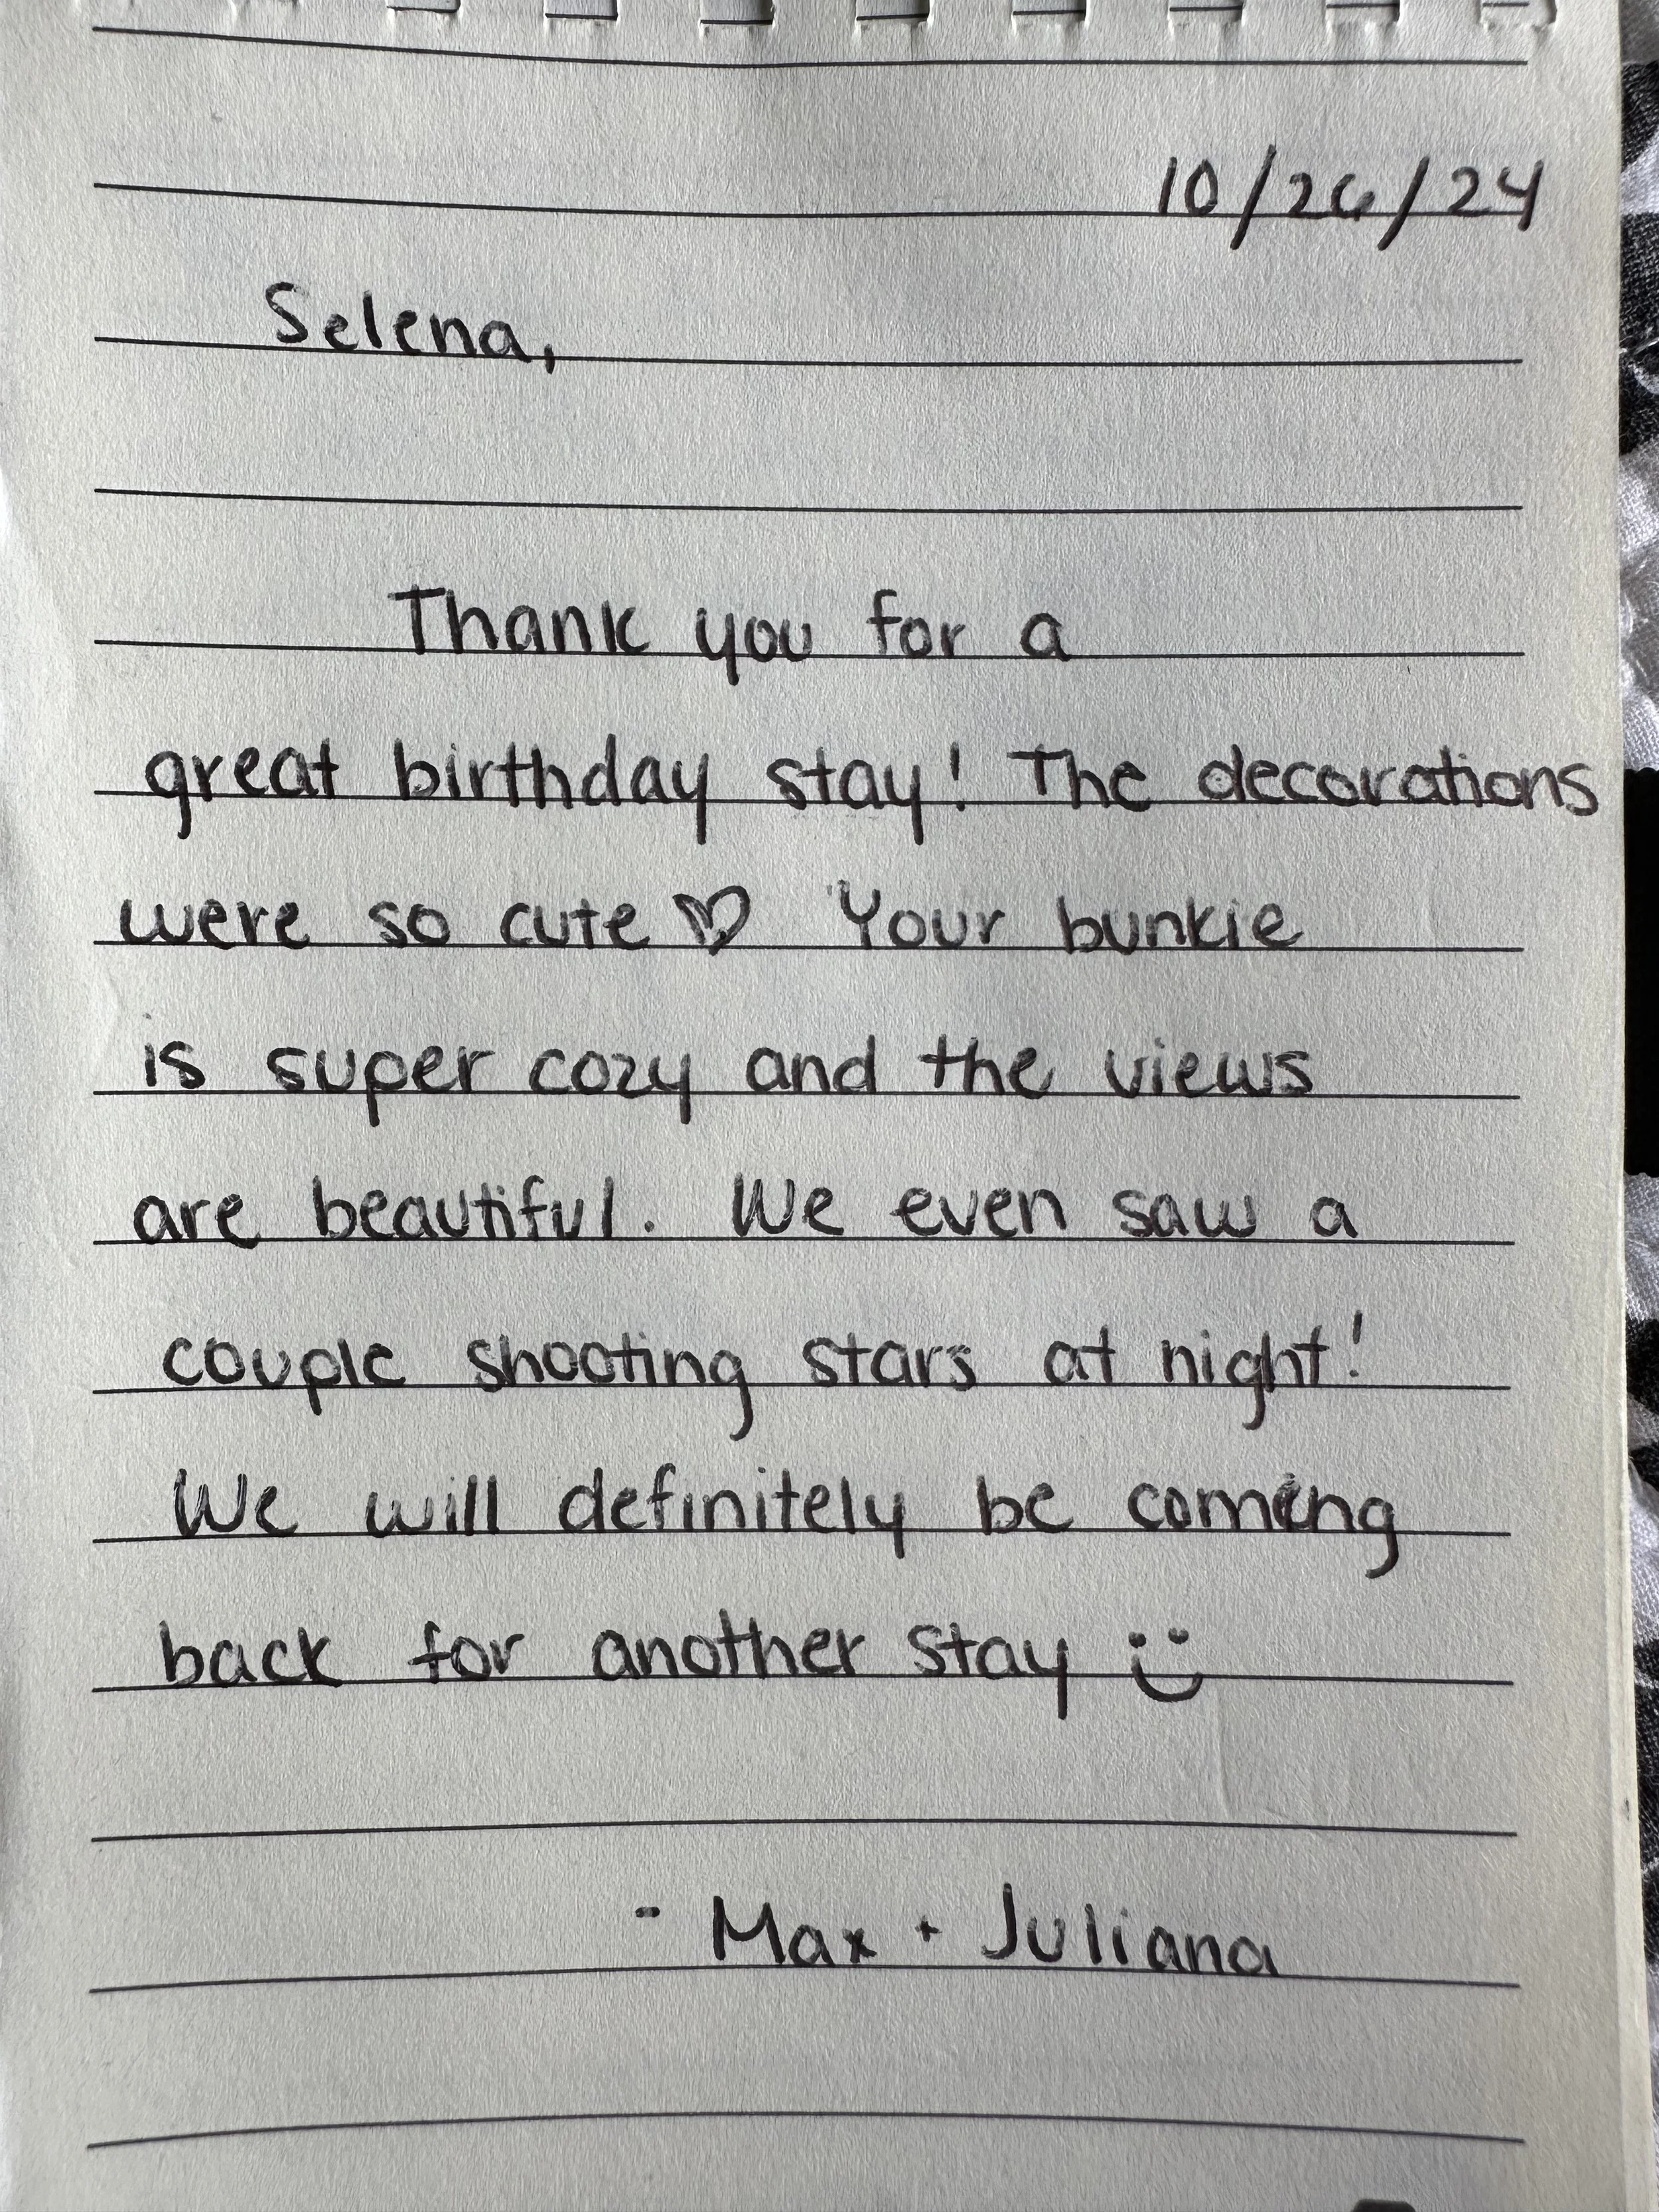 10/26/24
Selena,
Thank you for a
great birthday stay! The decorations
were so cute ♡ Your bunkie
is super cozy and the views
are beautiful. We even saw a
couple shooting stars at night!
We will definitely be coming
back for another stay :)
- Max + Juliana